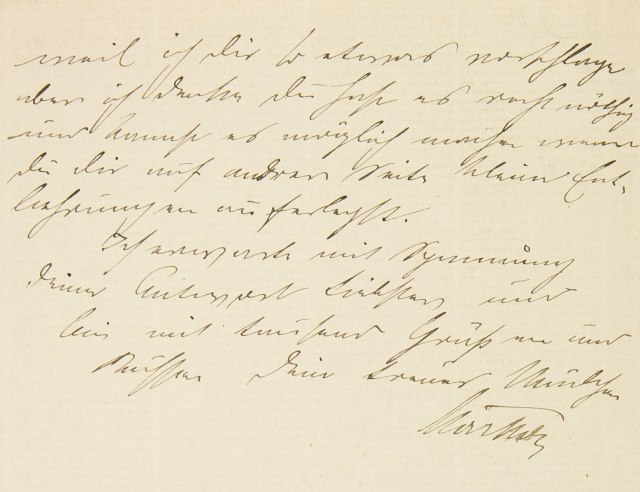 weil ich dir so etwas vorschlage
aber ich denke du hast es recht nötig
und kannst es möglich machen wenn
du dir auf andrer Seite kleine Ent-
behrungen auferlegst.
Ich erwarte mit Spannung
deine Antwort Liebster und
bin mit tausend Grüßen und
Küssen dein treues